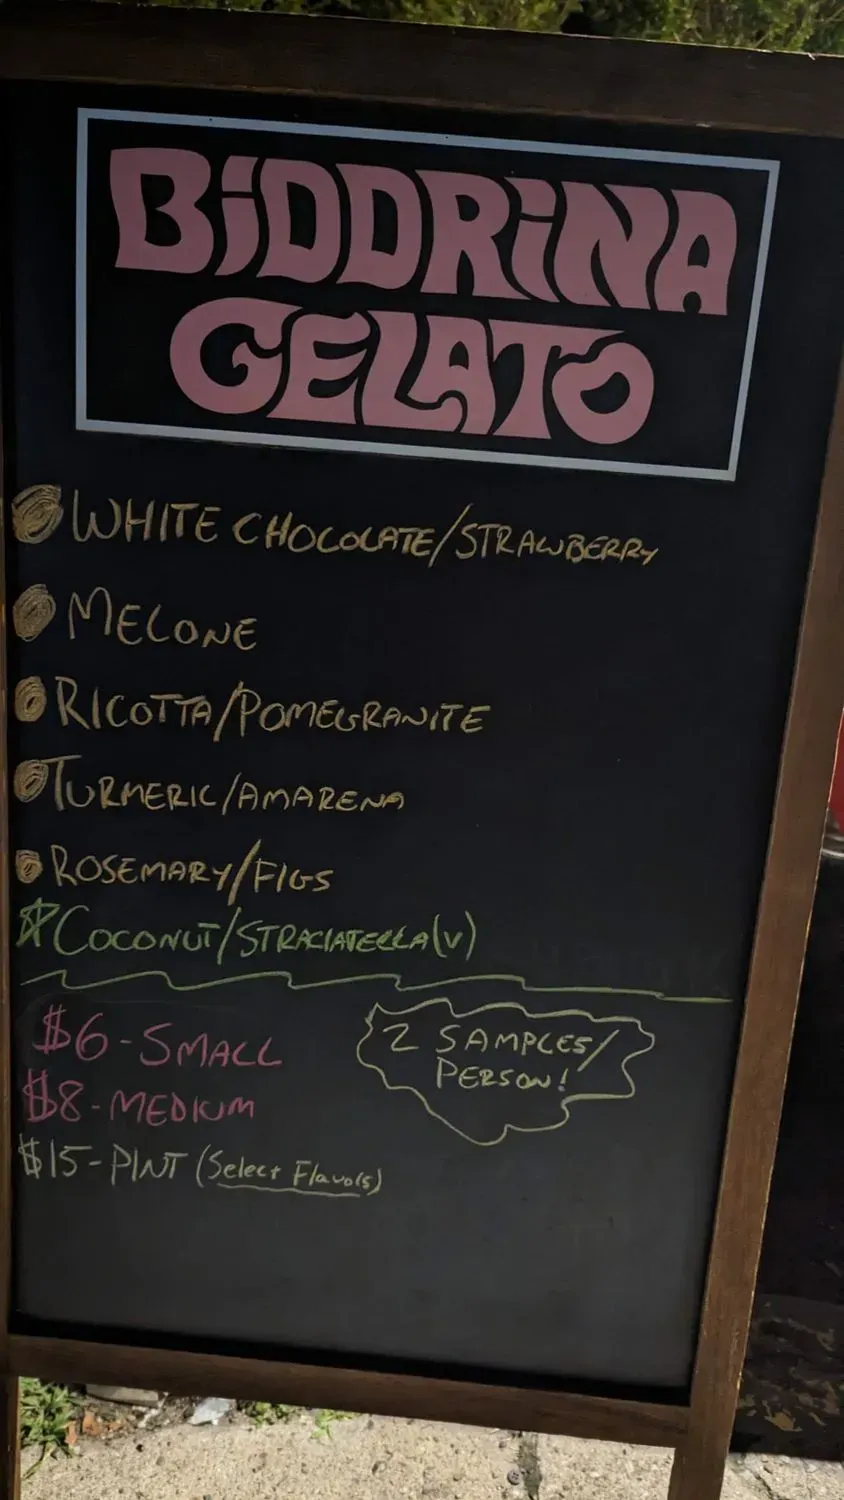 BiDDRiNA
GELATO
WHITE CHOCOLATE/STRAWBERRY
MELONE
RICOTTA/POMEGRANITE
TURMERIC/AMARENA
ROSEMARY/FIGS
COCONUT/STRACIATELLA(V)
$6-SMALL
$8-MEDIUM
$15-PINT (Select Flavors)
2 SAMPLES/
PERSON!